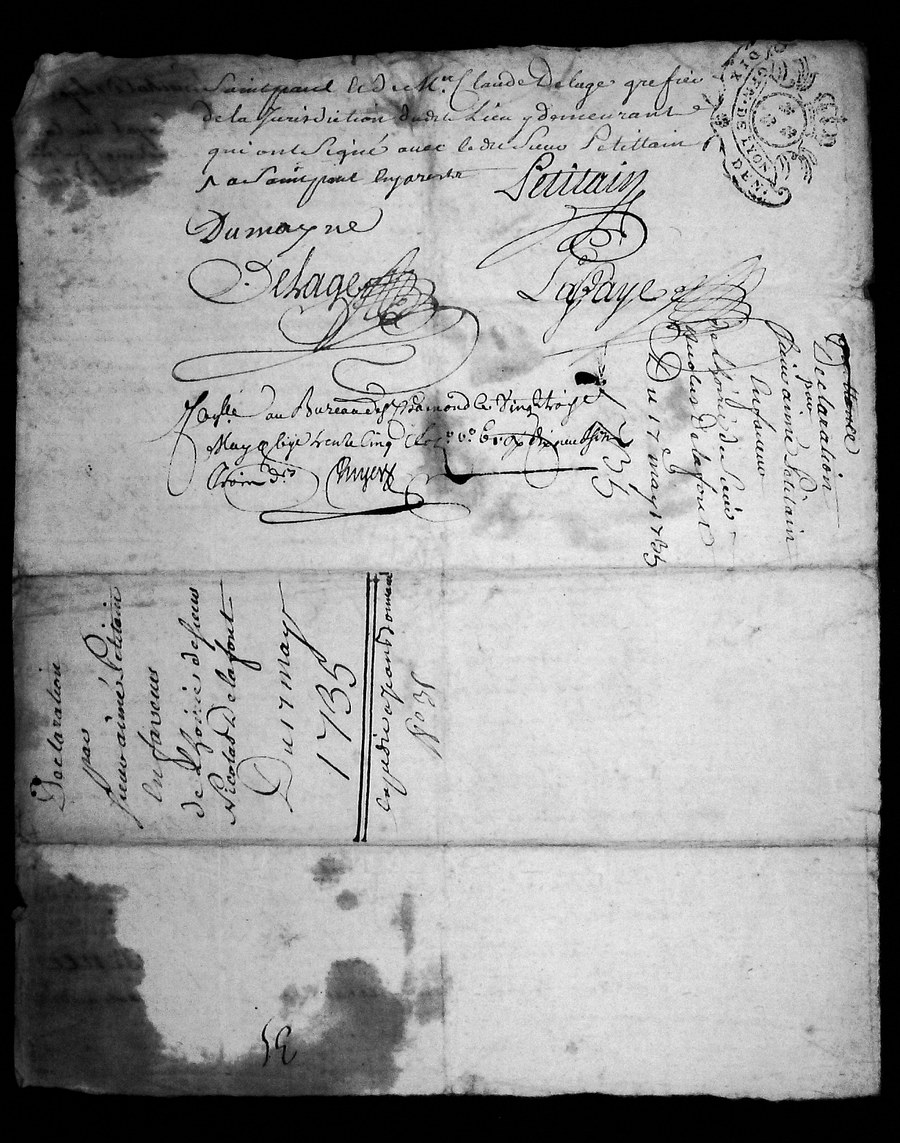 Saintpaul le d. Me. Claude Delage grefie
de la Jurisdiction dudit Lieu y demeurant
qui ont Signé avec le dit Sieur Petittain
a Saintpaul en
Petitain
Dumayne
Delage
Lafaye
au Bureau de St Chamond le Vingt trois
May trente cinq
trois
DIX
GEN. DE LYON
DEN.
quittance
Declaration
par
Sieur aimé Petitain
en faveur
de L'hoirie de Sieur
Nicolas Delafont
Du 17 may 1735
Declaration
par
sieur aimé Petitain
En faveur
de L'hoirie de sieur
Nicolas Delafont
Du 17 may
1735
35